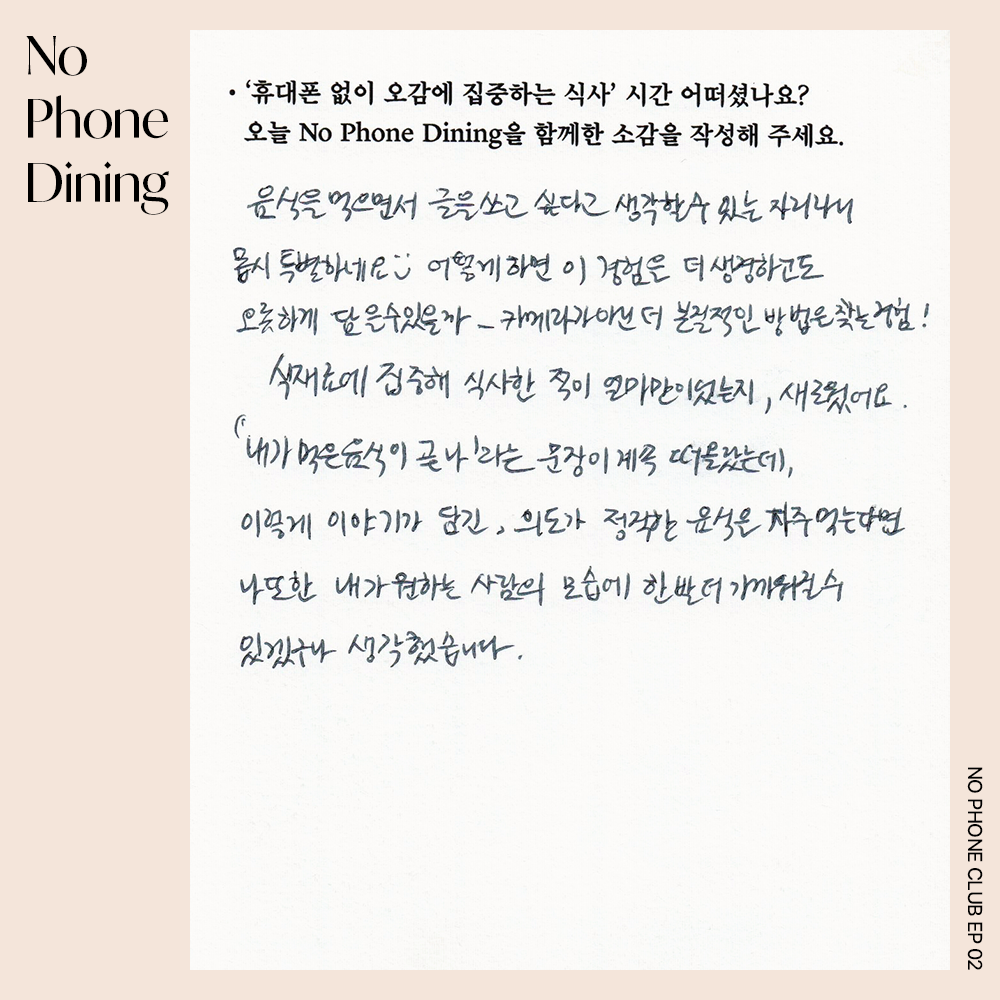 No
Phone
Dining
• ‘휴대폰 없이 오감에 집중하는 식사’ 시간 어떠셨나요?
오늘 No Phone Dining을 함께한 소감을 작성해 주세요.
음식을 먹으면서 글을 쓰고 싶다고 생각할 수 있는 자리라니
몹시 특별하네요 어떻게 하면 이 경험을 더 생경하고도
오롯하게 담을 수 있을까 – 카메라가 아닌 더 본질적인 방법을 찾는 경험!
식재료에 집중해 식사한 적이 얼마만이었는지, 새로웠어요.
('내가 먹은 음식이 곧 나'라는 문장이 계속 떠올랐는데),
이렇게 이야기가 담긴, 의도가 정직한 음식을 자주 먹는다면
나 또한 내가 원하는 사람의 모습에 한 발 더 가까워질 수
있겠구나 생각했습니다.
NO PHONE CLUB EP 02